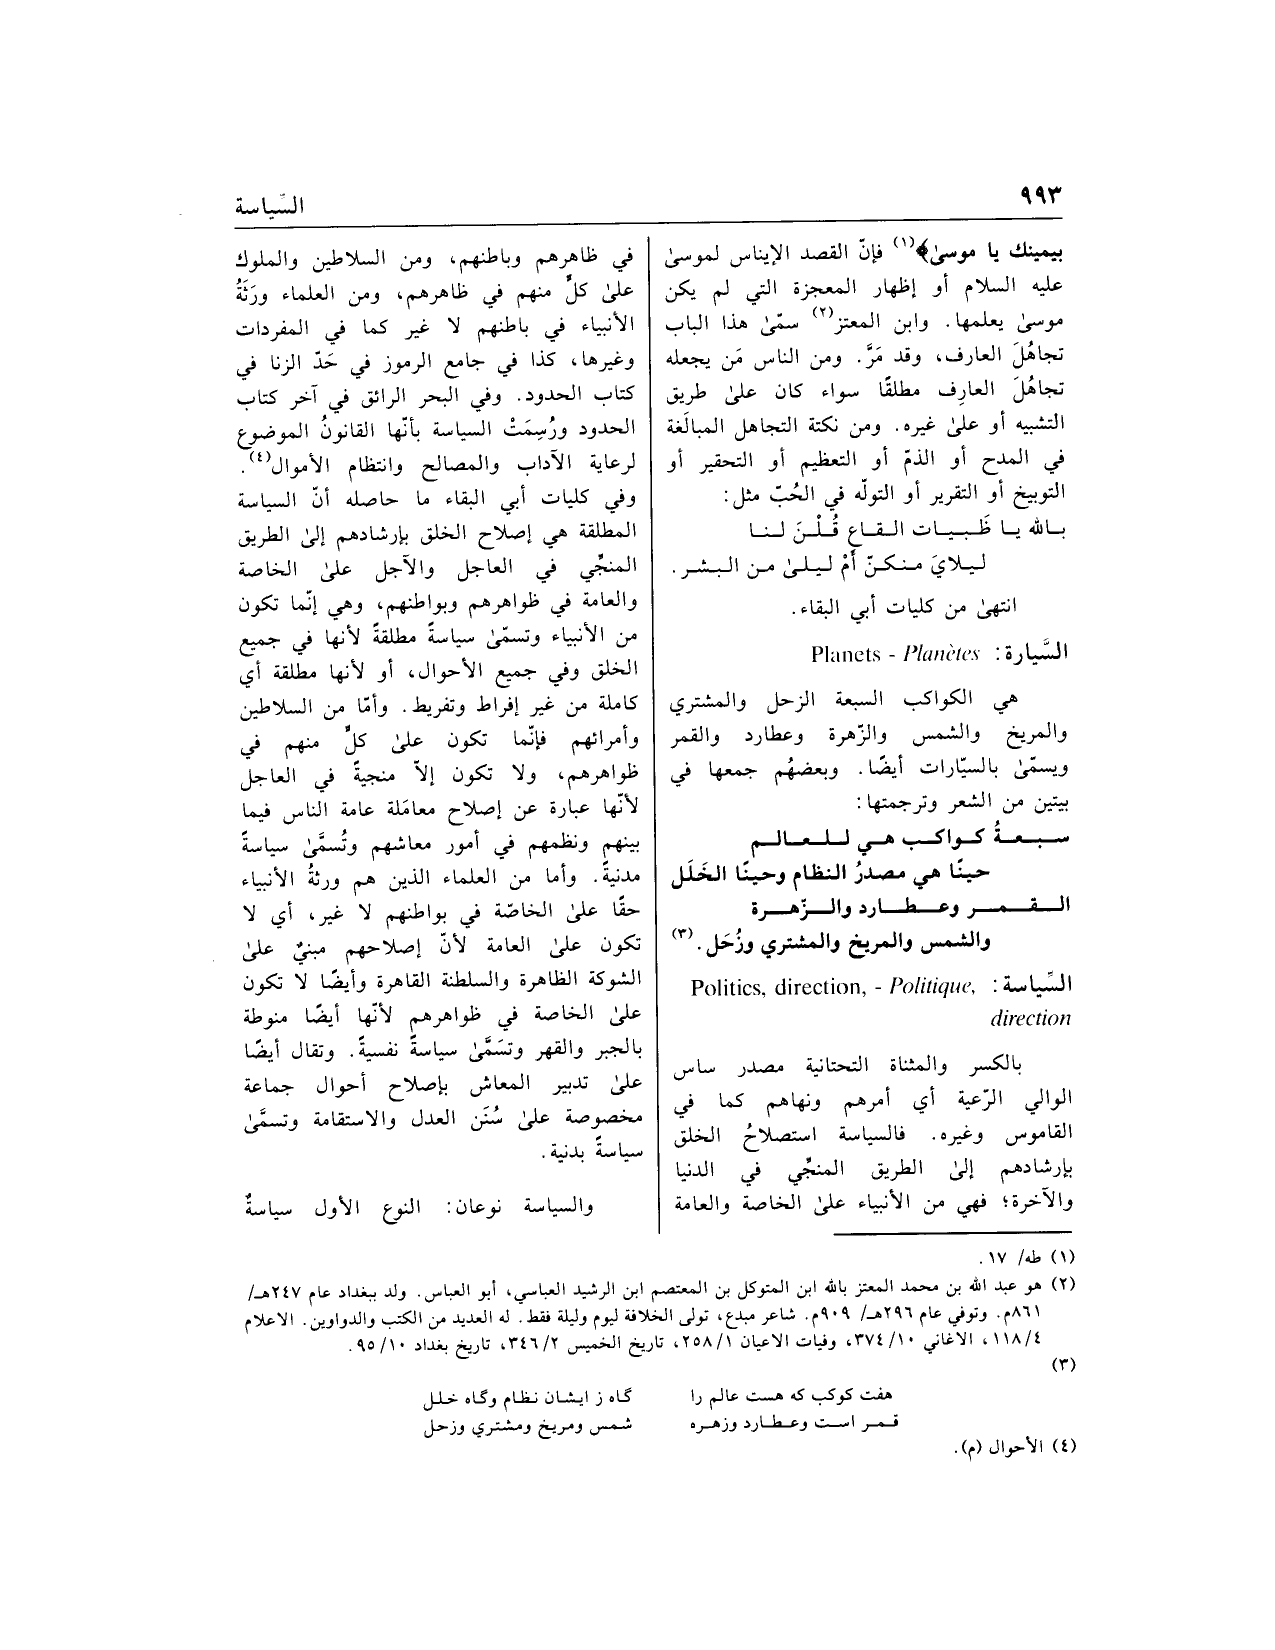 ٩٩٣
السِّياسة
بيمينك يا موسىٰ﴾(١) فإنّ القصد الإيناس لموسىٰ
عليه السلام أو إظهار المعجزة التي لم يكن
موسىٰ يعلمها. وابن المعتز(٢) سمّىٰ هذا الباب
تجاهُلَ العارف، وقد مَرَّ. ومن الناس مَن يجعله
تجاهُلَ العارِف مطلقًا سواء كان علىٰ طريق
التشبيه أو علىٰ غيره. ومن نكتة التجاهل المبالَغة
في المدح أو الذمّ أو التعظيم أو التحقير أو
التوبيخ أو التقرير أو التولّه في الحُبّ مثل:
بالله يا ظَبيات القاع قُلْنَ لنا
ليلايَ منكنّ أمْ ليلىٰ من البشر.
انتهىٰ من كليات أبي البقاء.
السَّيارة: Planets - Planètes
هي الكواكب السبعة الزحل والمشتري
والمريخ والشمس والزّهرة وعطارد والقمر
ويسمّىٰ بالسيّارات أيضًا. وبعضهُم جمعها في
بيتين من الشعر وترجمتها:
سبعةُ كواكب هي للعالم
حينًا هي مصدرُ النظام وحينًا الخَلَل
القمر وعطارد والزّهرة
والشمس والمريخ والمشتري وزُحَل.(٣)
السِّياسة: Politics, direction, - Politique,
direction
بالكسر والمثناة التحتانية مصدر ساس
الوالي الرّعية أي أمرهم ونهاهم كما في
القاموس وغيره. فالسياسة استصلاحُ الخلق
بإرشادهم إلىٰ الطريق المنجّي في الدنيا
والآخرة؛ فهي من الأنبياء علىٰ الخاصة والعامة
في ظاهرهم وباطنهم، ومن السلاطين والملوك
علىٰ كلٍّ منهم في ظاهرهم، ومن العلماء ورَثَةُ
الأنبياء في باطنهم لا غير كما في المفردات
وغيرها، كذا في جامع الرموز في حَدّ الزنا في
كتاب الحدود. وفي البحر الرائق في آخر كتاب
الحدود ورُسِمَتْ السياسة بأنّها القانونُ الموضوع
لرعاية الآداب والمصالح وانتظام الأموال(٤).
وفي كليات أبي البقاء ما حاصله أنّ السياسة
المطلقة هي إصلاح الخلق بإرشادهم إلىٰ الطريق
المنجّي في العاجل والآجل علىٰ الخاصة
والعامة في ظواهرهم وبواطنهم، وهي إنّما تكون
من الأنبياء وتسمّىٰ سياسةً مطلقةً لأنها في جميع
الخلق وفي جميع الأحوال، أو لأنها مطلقة أي
كاملة من غير إفراط وتفريط. وأمّا من السلاطين
وأمرائهم فإنّما تكون علىٰ كلٍّ منهم في
ظواهرهم، ولا تكون إلاّ منجيةً في العاجل
لأنّها عبارة عن إصلاح معامَلة عامة الناس فيما
بينهم ونظمهم في أمور معاشهم وتُسمَّىٰ سياسةً
مدنيةً. وأما من العلماء الذين هم ورثةُ الأنبياء
حقًا علىٰ الخاصّة في بواطنهم لا غير، أي لا
تكون علىٰ العامة لأنّ إصلاحهم مبنيٌ علىٰ
الشوكة الظاهرة والسلطنة القاهرة وأيضًا لا تكون
علىٰ الخاصة في ظواهرهم لأنّها أيضًا منوطة
بالجبر والقهر وتسَمَّىٰ سياسةً نفسيةً. وتقال أيضًا
علىٰ تدبير المعاش بإصلاح أحوال جماعة
مخصوصة علىٰ سُنَن العدل والاستقامة وتسمَّىٰ
سياسةً بدنية.
والسياسة نوعان: النوع الأول سياسةٌ
(١) طه/ ١٧.
(٢) هو عبد الله بن محمد المعتز بالله ابن المتوكل بن المعتصم ابن الرشيد العباسي، أبو العباس. ولد ببغداد عام ٢٤٧هـ/
٨٦١م. وتوفي عام ٢٩٦هـ/ ٩٠٩م. شاعر مبدع، تولى الخلافة ليوم وليلة فقط. له العديد من الكتب والدواوين. الاعلام
٤/ ١١٨، الاغاني ١٠/ ٣٧٤، وفيات الاعيان ١/ ٢٥٨، تاريخ الخميس ٢/ ٣٤٦، تاريخ بغداد ١٠/ ٩٥.
(٣)
هفت كوكب كه هست عالم را گاه ز ايشان نظام وگاه خلل
قمر است وعطارد وزهره شمس ومريخ ومشتري وزحل
(٤) الأحوال (م).